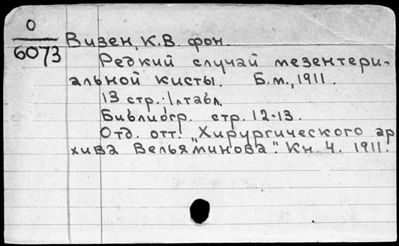 О
6073
Визен, К.В. фон.
Редкий случай мезентери-
альной кисты. Б.м., 1911.
13 стр. 1 л табл.
Библиогр. стр. 12-13.
Отд. отт. "Хирургического ар
хива Вельяминова". Кн. 4. 1911.